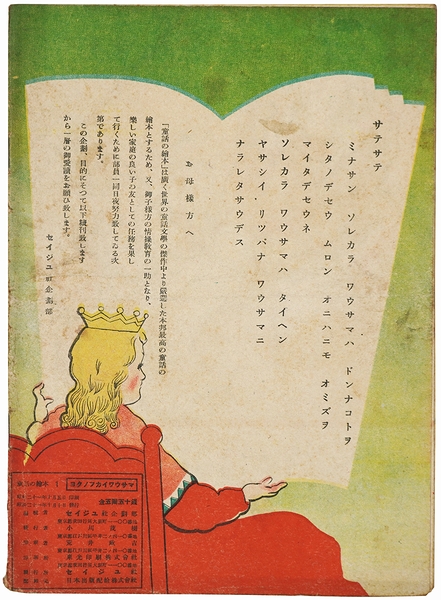 サテサテ
ミナサン ソレカラ ワウサマハ ドンナコトヲ
シタノデセウ ムロン オニハニモ オミズヲ
マイタデセウネ
ソレカラ ワウサマハ タイヘン
ヤサシイ リツパナ ワウサマニ
ナラレタサウデス
お母様方へ
『童話の繪本』は廣く世界の童話文學の傑作中より嚴選した本邦最高の童話の
繪本とするため、又、御子樣方の情操敎育の一助となり、
樂しい家庭の良い子の友としての任務を果し
て行くために部員一同日夜努力致してゐる次
第であります。
この企劃、目的にそつて以下續刊致します
から一層の御愛讀をお願ひ致します。
セイジユ社企劃部
童話の繪本 1
ヨクノフカイワウサマ
金貳圓五十錢
セイジユ社企劃部
セイジユ社
日本出版配給株式會社